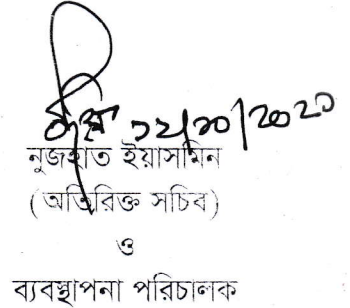 ১২/১০/২০২০
নুজহাত ইয়াসমিন
(অতিরিক্ত সচিব)
ও
ব্যবস্থাপনা পরিচালক